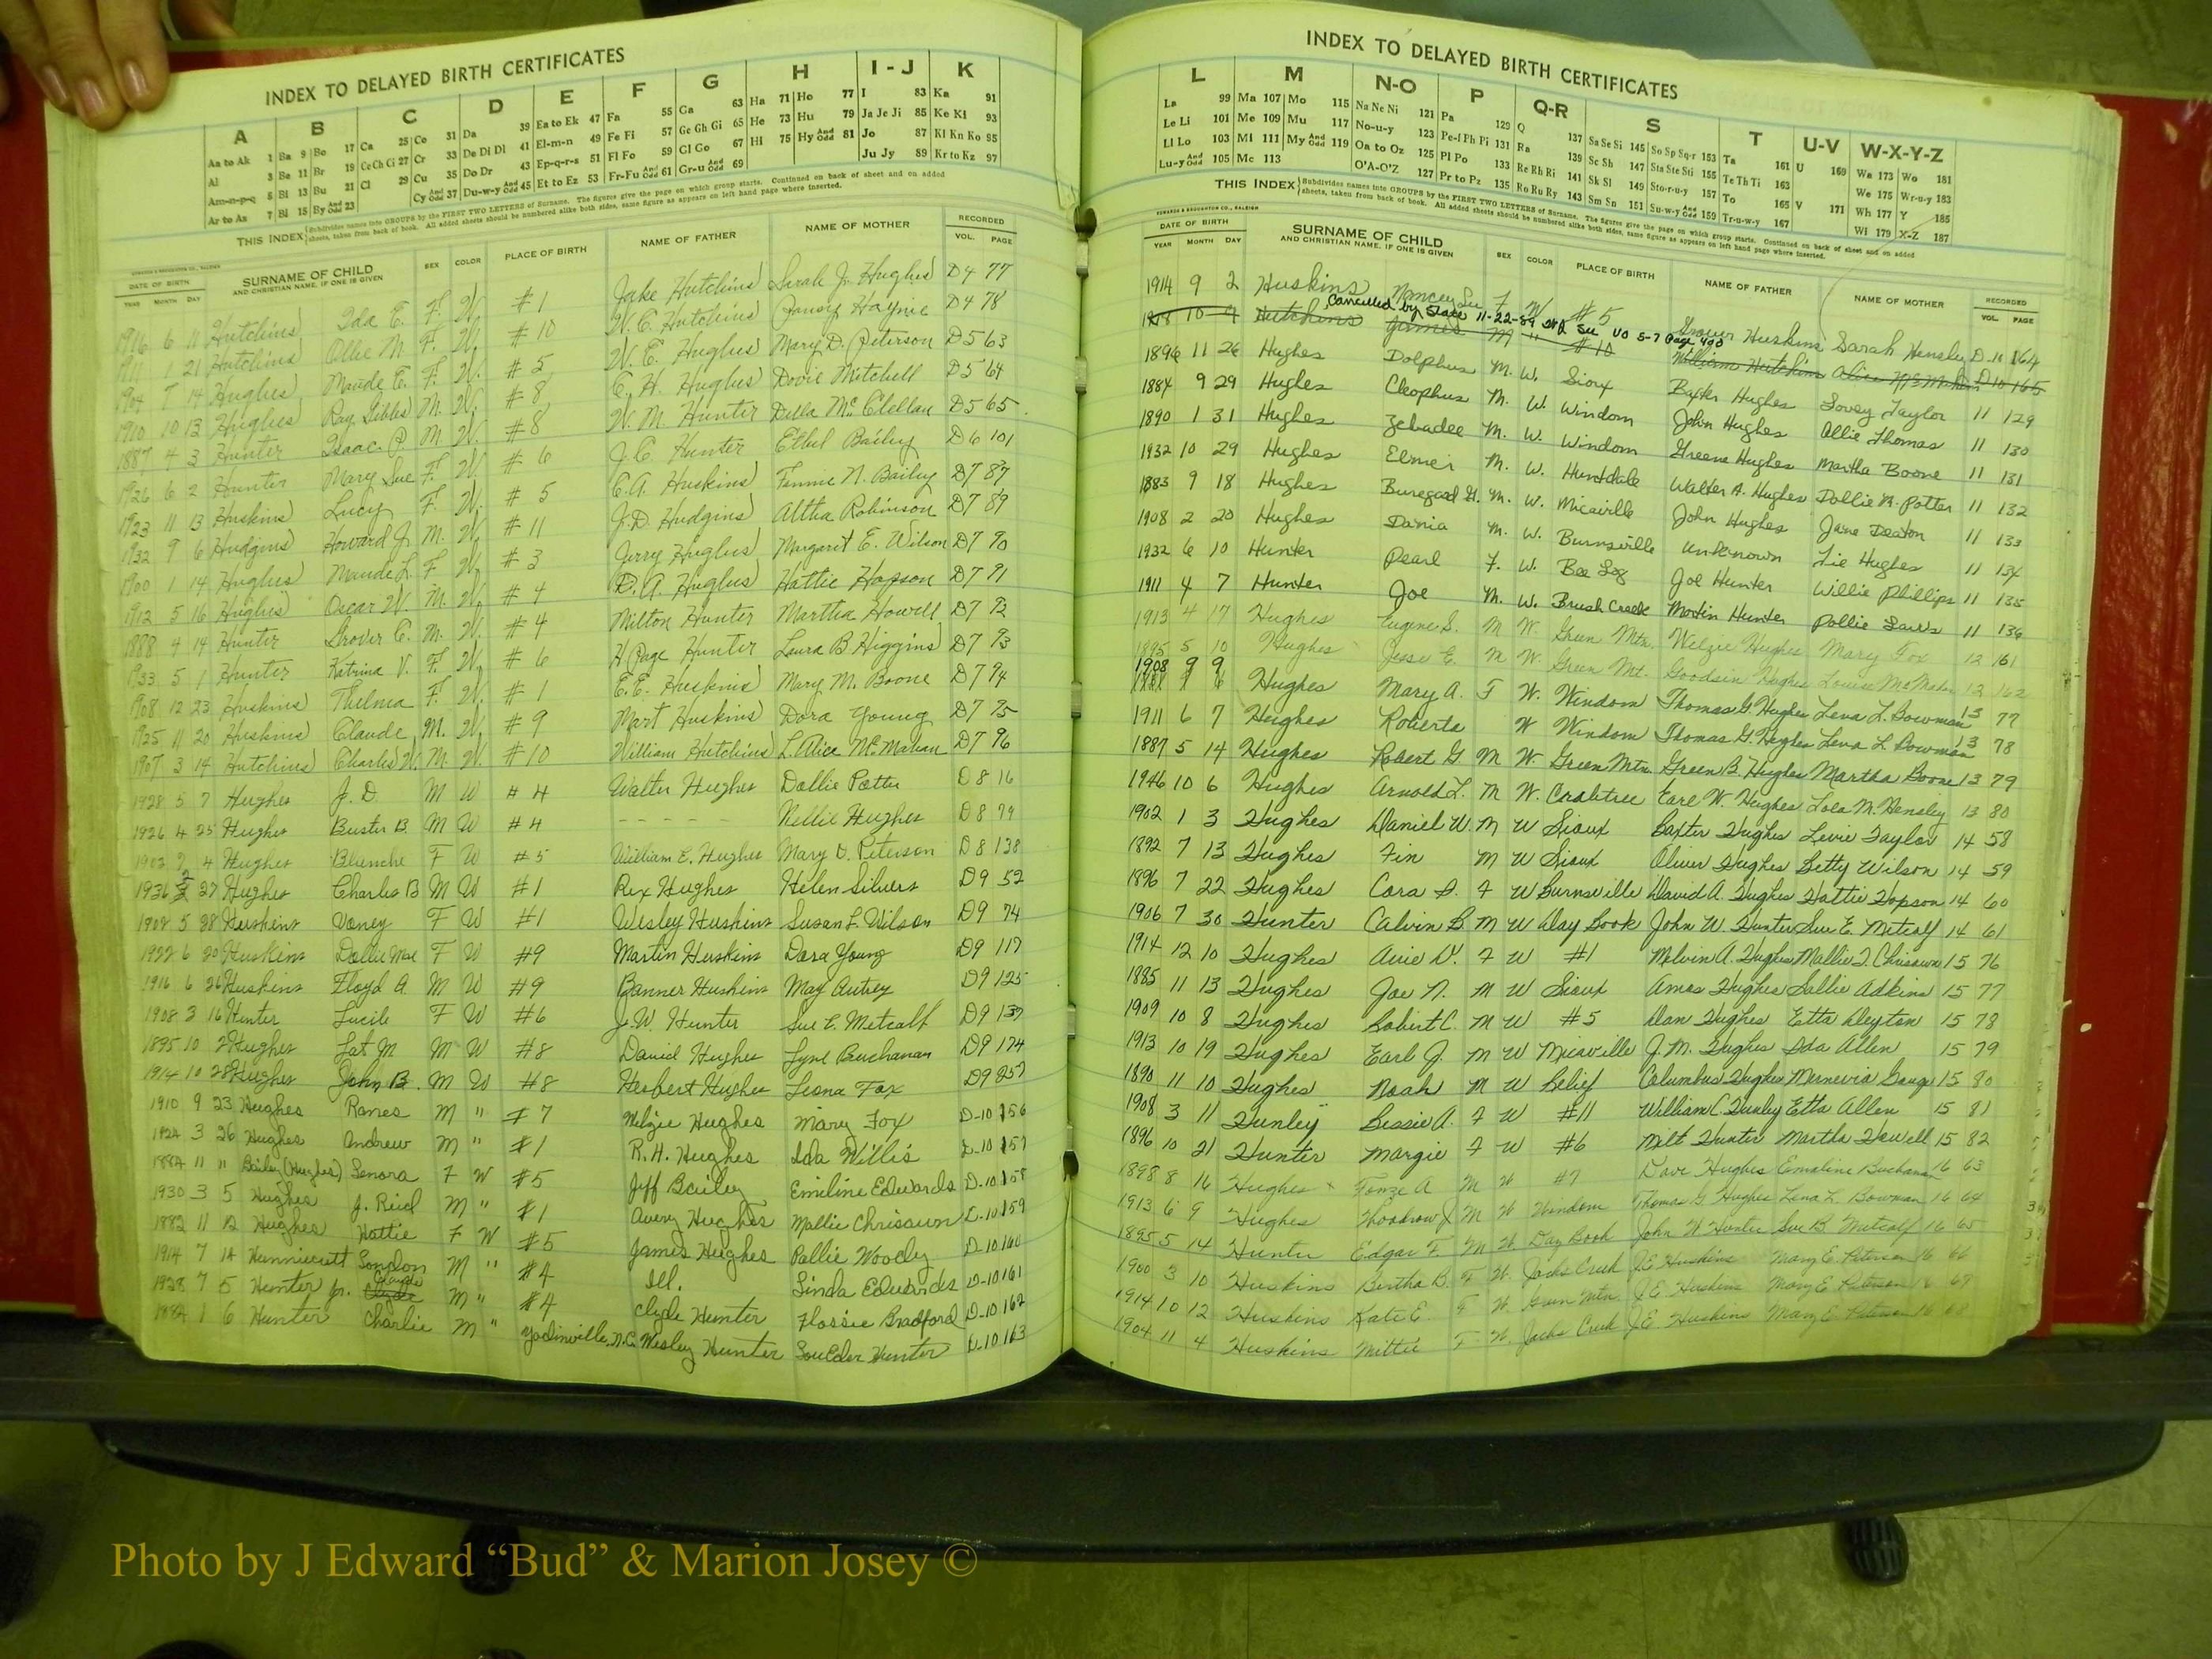 INDEX TO DELAYED BIRTH CERTIFICATES
A B C D E F G H I-J K
Aa to Ak 1 Ba 9 Bo 17 Ca 25 Co 31 Da 39 Ea to Ek 47 Fa 55 Ga 63 Ha 71 Ho 77 I 83 Ka 91
Al 3 Be 11 Br 19 Ce Ch Ci 27 Cr 33 De Di Dl 41 El-m-n 49 Fe Fi 57 Ge Gh Gi 65 He 73 Hu 79 Ja Je Ji 85 Ke Ki 93
Am-n-p-q 5 Bl 13 Bu 21 Cl 29 Cu 35 Do Dr 43 Ep-q-r-s 51 Fl Fo 59 Gl Go 67 Hi 75 Hy And Odd 81 Jo 87 Kl Kn Ko 95
Ar to As 7 Bl 15 By And Odd 23 Cy And Odd 37 Du-w-y And Odd 45 Et to Ez 53 Fr-Fu And Odd 61 Gr-u And Odd 69 Ju Jy 89 Kr to Kz 97
THIS INDEX Subdivides names into GROUPS by the FIRST TWO LETTERS of Surname. The figures give the page on which group starts. Continued on back of sheet and on added
sheets, taken from back of book. All added sheets should be numbered alike both sides, same figure as appears on left hand page where inserted.
DATE OF BIRTH SURNAME OF CHILD SEX COLOR PLACE OF BIRTH NAME OF FATHER NAME OF MOTHER RECORDED
YEAR MONTH DAY AND CHRISTIAN NAME, IF ONE IS GIVEN VOL. PAGE
1916 6 11 Hutchins Ida E. F. W. #1 Jake Hutchins Sarah J. Hughes D4 77
1911 1 21 Hutchins Ollie M. F. W. #10 W. C. Hutchins Pansy Haynie D4 78
1904 7 14 Hughes Maude E. F. W. #5 W. E. Hughes Mary D. Peterson D5 63
1910 10 13 Hughes Ray Gibbs M. W. #8 C. H. Hughes Dovie Mitchell D5 64
1887 4 3 Hunter Isaac P. M. W. #8 W. M. Hunter Della McClellan D5 65
1926 6 2 Hunter Mary Sue F. W. #6 J. C. Hunter Ethel Bailey D6 101
1923 11 13 Huskins Lucy F. W. #5 C. A. Huskins Fannie N. Bailey D7 87
1932 9 6 Hudgins Howard J. M. W. #11 J. D. Hudgins Altha Robinson D7 89
1900 1 14 Hughes Maude L. F. W. #3 Jerry Hughes Margaret E. Wilson D7 90
1912 5 16 Hughes Oscar W. M. W. #4 D. A. Hughes Hattie Hopson D7 91
1888 4 14 Hunter Grover C. M. W. #4 Milton Hunter Martha Howell D7 92
1933 5 1 Hunter Katrina V. F. W. #6 H Page Hunter Laura B Higgins D7 93
1908 12 23 Huskins Thelma F. W. #1 E. E. Huskins Mary M. Boone D7 94
1925 11 20 Huskins Claude M. W. #9 Mart Huskins Dora Young D7 95
1907 3 14 Hutchins Charles W. M. W. #10 William Hutchins L. Alice McMahan D7 96
1928 5 7 Hughes J. D. M W #4 Walter Hughes Dollie Potter D8 16
1926 4 25 Hughes Buster B. M W #4 - - - - - Nellie Hughes D8 79
1902 7 4 Hughes Blanche F W #5 William E. Hughes Mary D. Peterson D8 138
1936 2 27 Hughes Charles B M W #1 Rex Hughes Helen Silvers D9 52
1902 5 28 Huskins Voney F W #1 Wesley Huskins Susan L. Wilson D9 74
1922 6 20 Huskins Dollie Mae F W #9 Martin Huskins Dora Young D9 117
1916 6 26 Huskins Floyd A. M W #9 Banner Huskins May Autrey D9 125
1908 3 16 Hunter Lucile F W #6 J. W. Hunter Sue E. Metcalf D9 137
1895 10 2 Hughes Lat M M W #8 David Hughes Lyne Buchanan D9 174
1914 10 28 Hughes John B. M W #8 Herbert Hughes Leona Fox D9 257
1910 9 23 Hughes Ranes M " #7 Welzie Hughes Mary Fox D-10 156
1924 3 26 Hughes Andrew M " #1 R. H. Hughes Ida Willis D-10 157
1884 11 11 Bailey (Hughes) Senora F W #5 Jeff Bailey Emiline Edwards D-10 158
1930 3 5 Hughes J. Reid M " #1 Avery Hughes Mallie Chrisawn D-10 159
1882 11 12 Hughes Hattie F W #5 James Hughes Pollie Woody D-10 160
1914 7 14 Hunnicutt London M " #4 Ill. Linda Edwards D-10 161
1928 7 5 Hunter Jr. Clyde M " #4 Clyde Hunter Flossie Bradford D-10 162
1884 1 6 Hunter Charlie M " Yadinville, N.C. Wesley Hunter Lou Eder Hunter D-10 163
INDEX TO DELAYED BIRTH CERTIFICATES
L M N-O P Q-R S T U-V W-X-Y-Z
La 99 Ma 107 Mo 115 Na Ne Ni 121 Pa 129 Q 137 Sa Se Si 145 So Sp Sq-r 153 Ta 161 U 169 Wa 173 Wo 181
Le Li 101 Me 109 Mu 117 No-u-y 123 Pe-f Ph Pi 131 Ra 139 Sc Sh 147 Sta Ste Sti 155 Te Th Ti 163 We 175 Wr-u-y 183
Ll Lo 103 Mi 111 My And Odd 119 Oa to Oz 125 Pl Po 133 Re Rh Ri 141 Sk Sl 149 Sto-r-u-y 157 To 165 V 171 Wh 177 Y 185
Lu-y And Odd 105 Mc 113 O'A-O'Z 127 Pr to Pz 135 Ro Ru Ry 143 Sm Sn 151 Su-w-y And Odd 159 Tr-u-w-y 167 Wi 179 X-Z 187
THIS INDEX Subdivides names into GROUPS by the FIRST TWO LETTERS of Surname. The figures give the page on which group starts. Continued on back of sheet and on added
sheets, taken from back of book. All added sheets should be numbered alike both sides, same figure as appears on left hand page where inserted.
EDWARDS & BROUGHTON CO., RALEIGH
DATE OF BIRTH SURNAME OF CHILD SEX COLOR PLACE OF BIRTH NAME OF FATHER NAME OF MOTHER RECORDED
YEAR MONTH DAY AND CHRISTIAN NAME, IF ONE IS GIVEN VOL. PAGE
1914 9 2 Huskins Nancy Lu F W #5 Grover Huskins Sarah Hensley D-10 164
Cancelled by State 11-22-89 See VO 5-7 Page 490
1918 10 9 Hutchins James M " #10 William Hutchins Alice McMahan D10 165
1896 11 26 Hughes Dolphus M. W. Sioux Baxter Hughes Lovey Taylor 11 129
1884 9 29 Hughes Cleophus M. W. Windom John Hughes Allie Thomas 11 130
1890 1 31 Hughes Zebadee M. W. Windom Greene Hughes Martha Boone 11 131
1932 10 29 Hughes Elmer M. W. Huntdale Walter A. Hughes Dollie A. Potter 11 132
1883 9 18 Hughes Buregard H. M. W. Micaville John Hughes Jane Deaton 11 133
1908 2 20 Hughes Dania M. W. Burnsville Unknown Lie Hughes 11 134
1932 6 10 Hunter Pearl F. W. Bee Log Joe Hunter Willie Phillips 11 135
1911 4 7 Hunter Joe M. W. Brush Creek Martin Hunter Pollie Laws 11 136
1913 4 17 Hughes Eugene S. M W Green Mtn. Welzie Hughes Mary Fox 12 161
1895 5 10 Hughes Jesse E. M W Green Mt. Goodsin Hughes Louise McMahan 12 162
1908 9 9 Hughes Mary A. F W. Windom Thomas G. Hughes Lena L. Bowman 13 77
1911 6 7 Hughes Roberta W Windom Thomas G. Hughes Lena L Bowman 13 78
1887 5 14 Hughes Robert G. M W. Green Mtn. Green B. Hughes Martha Boone 13 79
1946 10 6 Hughes Arnold L. M W. Crabtree Earl W. Hughes Lola M. Hensley 13 80
1902 1 3 Hughes Daniel W. M W Sioux Baxter Hughes Levie Taylor 14 58
1892 7 13 Hughes Fin M W Sioux Oliver Hughes Betty Wilson 14 59
1896 7 22 Hughes Cora D. F W Burnsville David A. Hughes Hattie Hopson 14 60
1906 7 30 Hunter Calvin B. M W Day Book John W. Hunter Sue E. Metcalf 14 61
1914 12 10 Hughes Avie D. F W #1 Melvin A. Hughes Mallie J. Chrisawn 15 76
1885 11 13 Hughes Joe N. M W Sioux Amos Hughes Sallie Adkins 15 77
1909 10 8 Hughes Robert C. M W #5 Dan Hughes Etta Deyton 15 78
1913 10 19 Hughes Earl J. M W Micaville J. M. Hughes Ida Allen 15 79
1890 11 10 Hughes Noah M W Relief Columbus Hughes Mernevia Gouge 15 80
1908 3 11 Hunley Bessie A. F W #11 William C. Hunley Etta Allen 15 81
1896 10 21 Hunter Margie F W #6 Milt Hunter Martha Howell 15 82
1898 8 16 Hughes Fonze A M W #7 Dave Hughes Emaline Buchanan 16 63
1913 6 9 Hughes Woodrow J M W Windom Thomas G Hughes Lena L. Bowman 16 64
1895 5 14 Hunter Edgar F M W. Day Book John W Hunter Sue B. Metcalf 16 65
1900 3 10 Huskins Bertha B. F W. Jacks Creek J.E. Huskins Mary E. Peterson 16 66
1914 10 12 Huskins Kate E. F W. Green Mtn. J.E. Huskins Mary E. Peterson 16 67
1904 11 4 Huskins Mittie F W. Jacks Creek J.E. Huskins Mary E. Peterson 16 68
Photo by J Edward “Bud” & Marion Josey ©